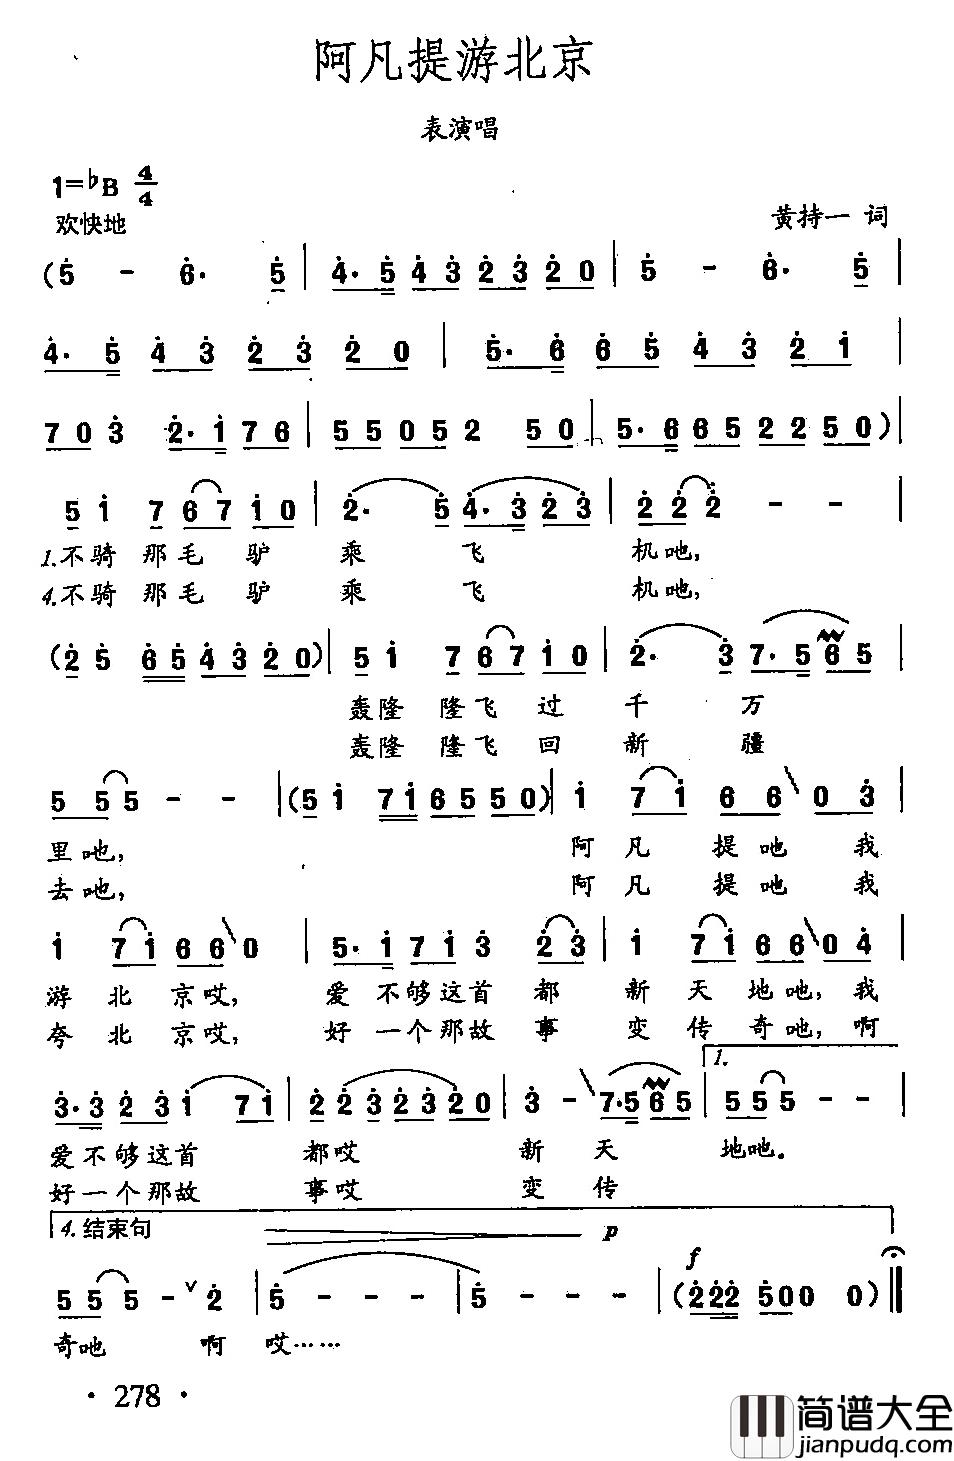 阿凡提游北京
表演唱
1=♭B 4/4
欢快地
黄持一 词
(5 - 6· 5 | 4·5 43 23 20 | 5 - 6· 5 |
4·5 43 23 20 | 5·6 65 43 21 |
703 2·1 76 | 5505 2 50 | 5·665 22 50) |
5 1 7 67 10 | 2· 5 4·3 23 | 2 2 2 - - |
1.不骑那毛驴乘飞机吔,
4.不骑那毛驴乘飞机吔,
(25 65 43 20) | 5 1 7 67 10 | 2· 3 7·5 65 |
轰隆隆飞过千万
轰隆隆飞回新疆
5 55 - - | (51 7165 550) | 1 71 66 03 |
里吔, 阿凡提吔我
去吔, 阿凡提吔我
1 71 66 0 | 5·1 71 3 23 | 1 71 66 04 |
游北京哎, 爱不够这首都新天地吔,我
夸北京哎, 好一个那故事变传奇吔,啊
3·3 23 1 71 | 22 3 23 20 | 3 - 7·5 65 | 1. 5 55 - - |
爱不够这首都哎新天地吔。
好一个那故事哎变传
4. 结束句 p
f
5 5 5 - 2 | 5 - - - | 5 - - - | (2 22 500 0)
奇吔 啊 哎……
· 278 ·
简谱大全
jianpudq.com